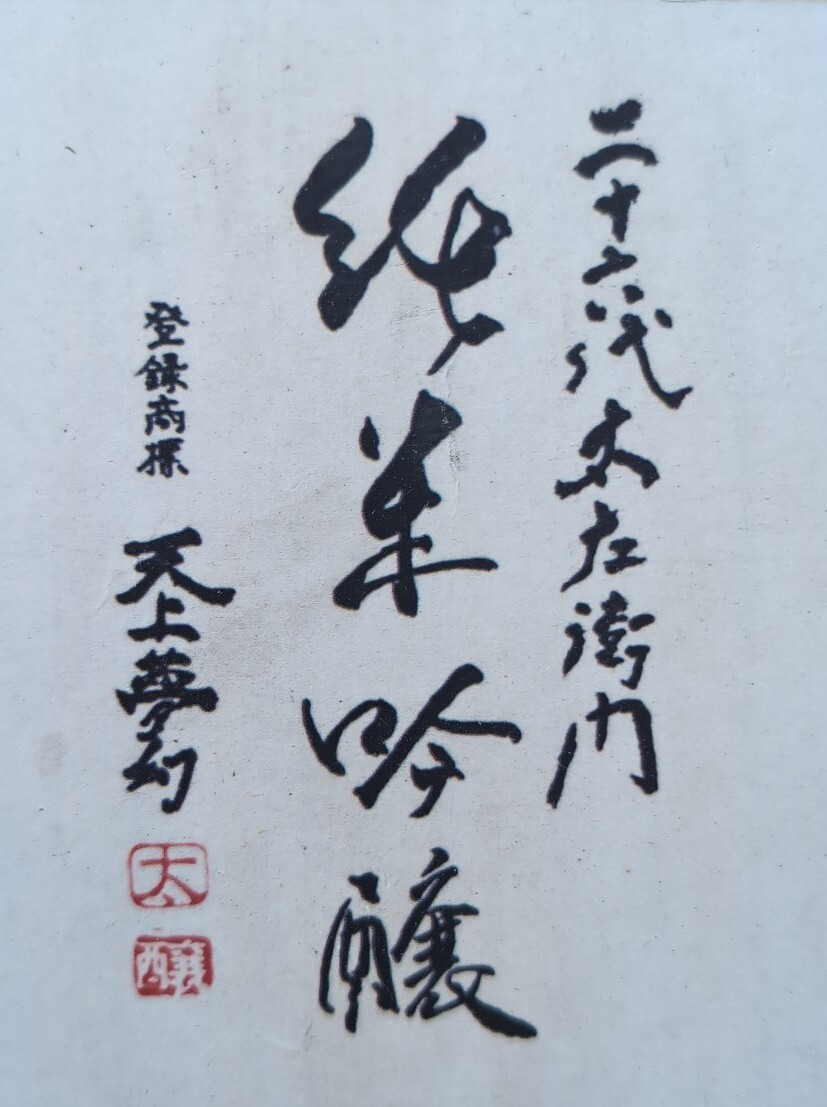 二十六代太左衛門
純米吟醸
登録商標 天上夢幻
太
醸